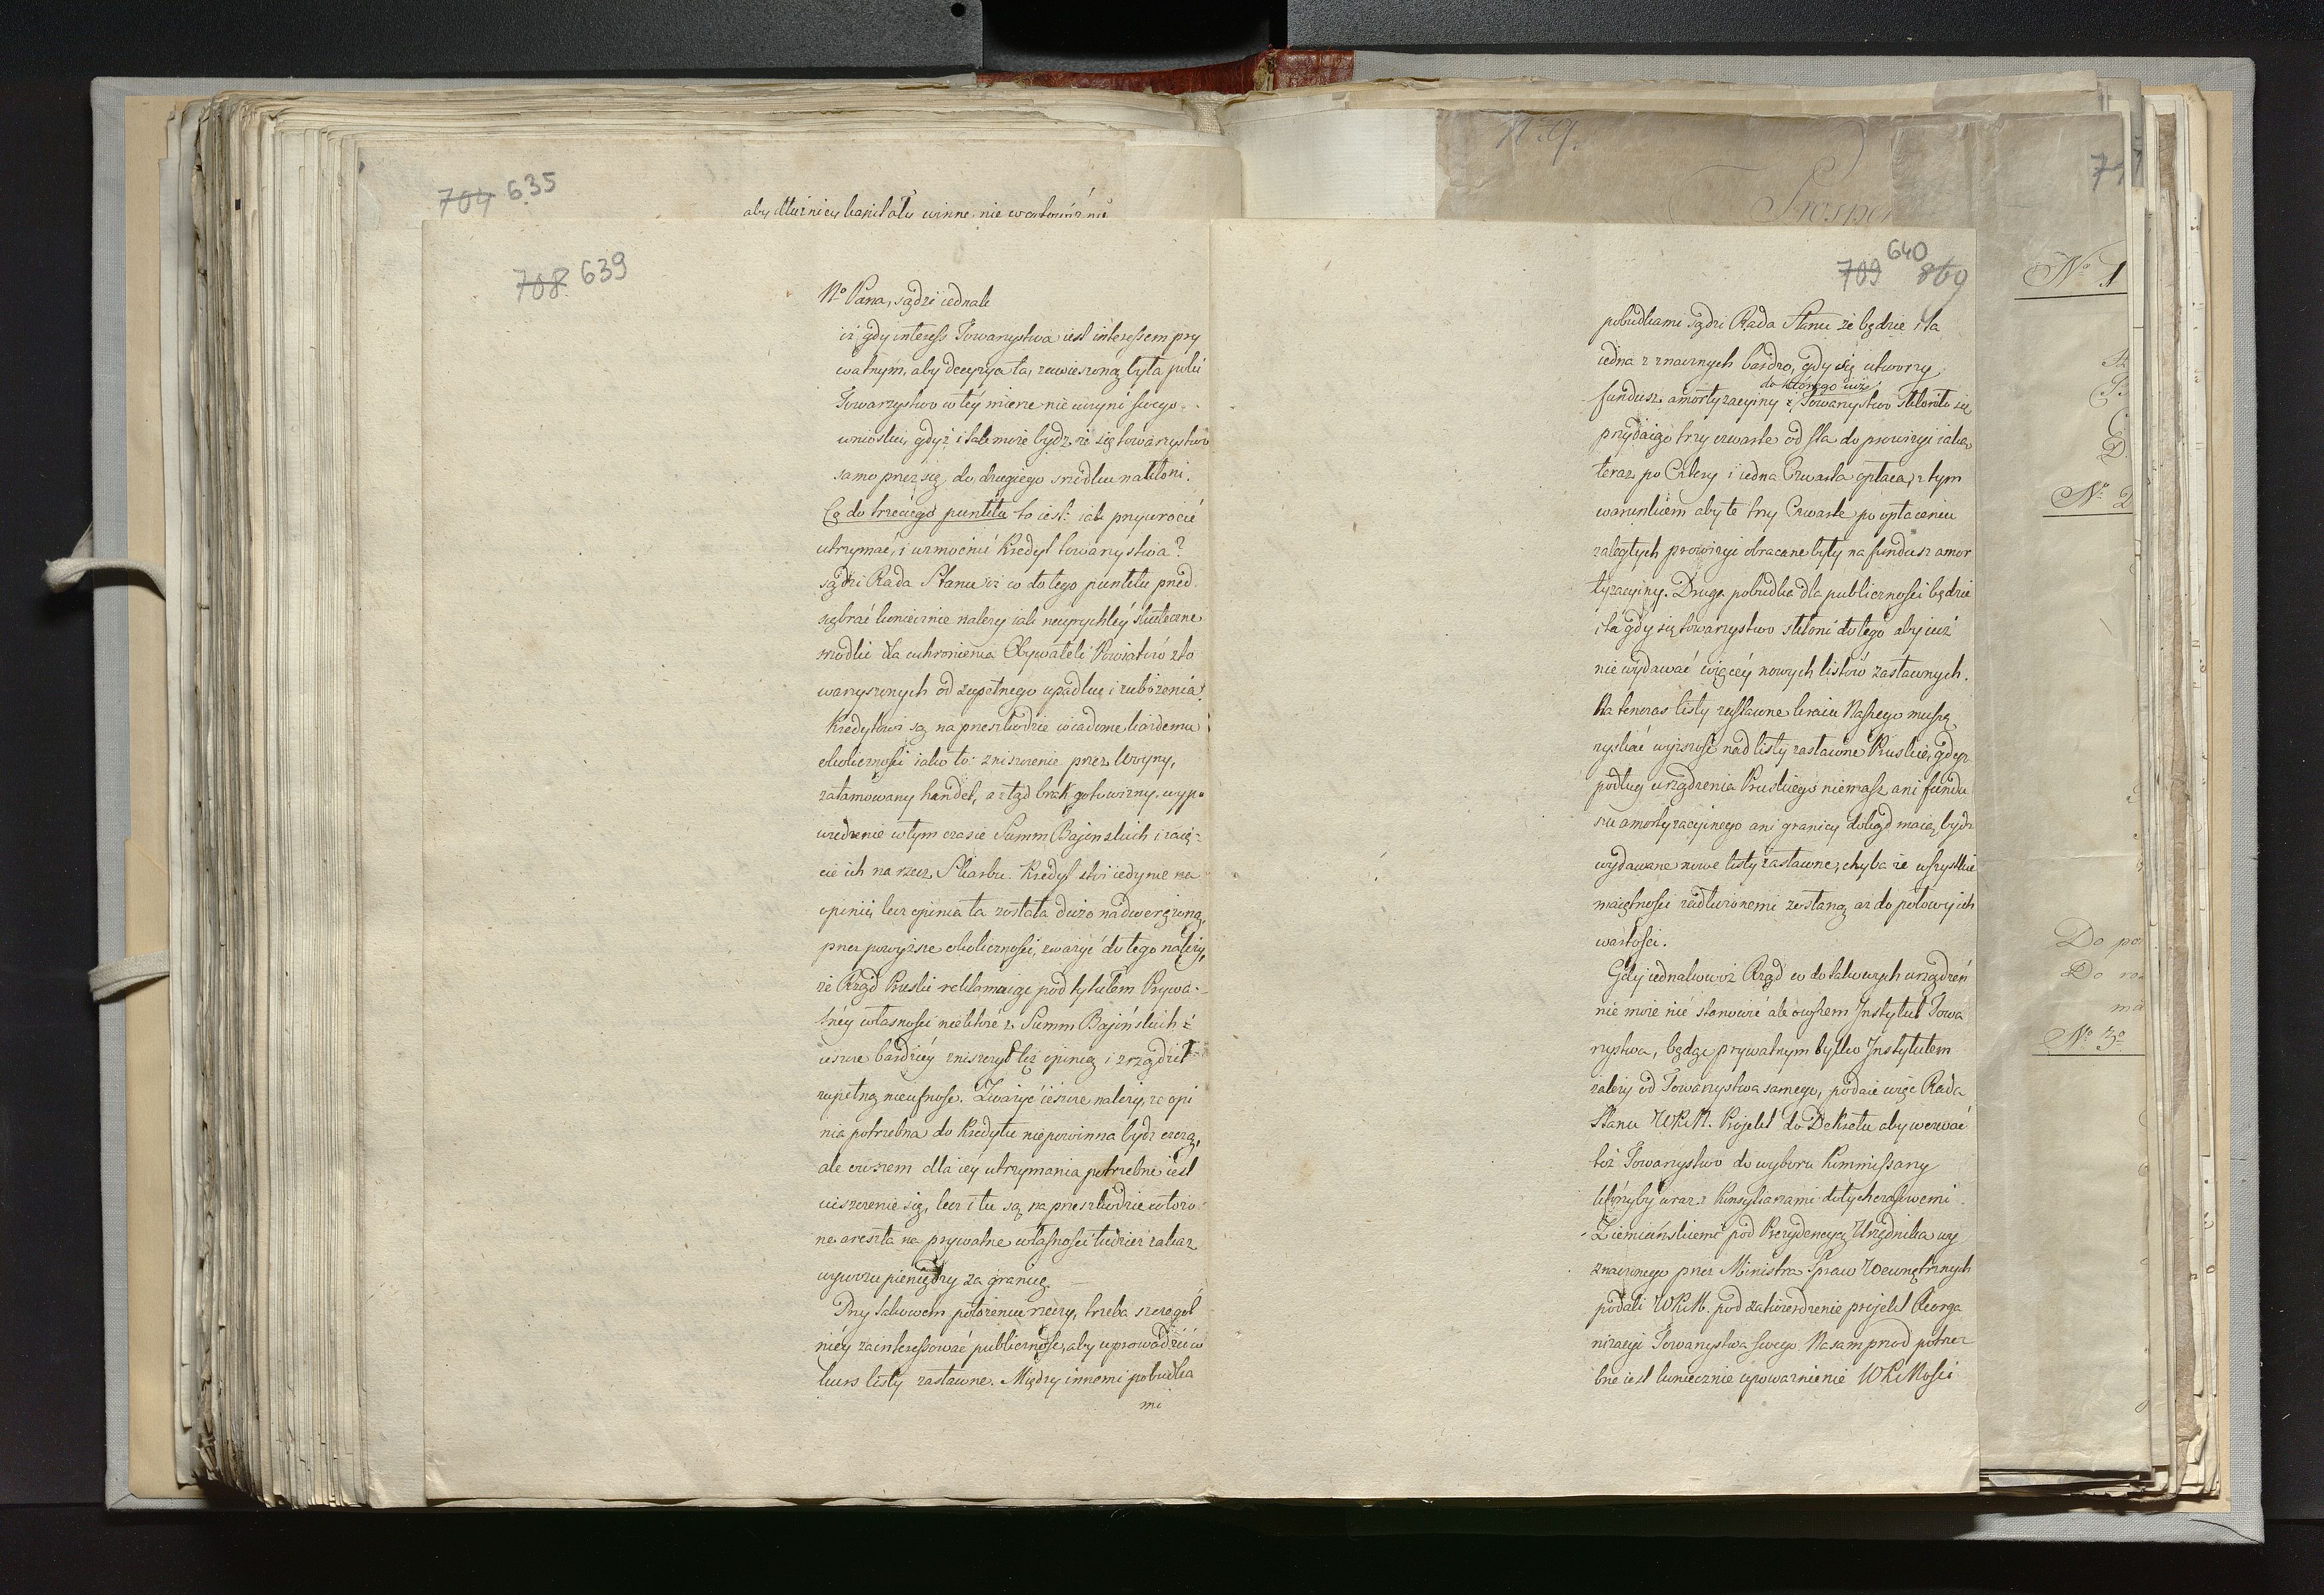 704 635
aby dłużnicy kapitały winne, nie w
708. 639
Nº Pana, sądzi iednak
iż gdy interess Towarzystwa iest interessem pry
watnym, aby decyzya ta, zawieszoną była póki
Towarzystwo w téy mierze nie uczyni swego
wniosku, gdyż i tak może bydź że się towarzystwo
samo przez się do drugiego środku nakłoni.
Co do trzeciego punktu to iest: iak przywrócić
utrzymać, i wzmocnić Kredyt towarzystwa?
sądzi Rada Stanu iż co do tego punktu przed
sębrać koniecznie należy iak nayrychléy skuteczne
srodki dla uchronienia Obywateli Powiatów sto
warzyszonych od zupełnego upadku i zubożenia.
Kredytowi są na przeszkodzie wiadome każdemu
okoliczności iako to: zniszczenie przez Woyny,
zatamowany handel, a ztąd brak gotowizny, wypo
wiedzenie w tym czasie Summ Bajońskich i zaię-
cie ich na rzecz Skarbu. Kredyt stoi iedynie na
opinii, lecz opinia ta została dużo nadwerężoną,
przez powyższe okoliczności, zważyć do tego należy,
że Rząd Pruski reklamuiąc pod tytułem Prywa-
tnéy własności niektóre z Summ Bajońskich
ieszcze bardziéy zniszczył tę opinią i zrządził
zupełną nieufność. Zważyć ieszcze należy, że opi
nia potrzebna do Kredytu niepowinna bydź czczą,
ale owszem dla iéy utrzymania potrzebne iest
uiszczenie się, lecz i tu są na przeszkodzie włożo
ne areszta na prywatne własności tudzież zakaz
wywozu pieniędzy za granicę. —
Przy takowem położeniu rzeczy, trzeba szczegól
niéy zainteressować publiczność, aby wprowadzić w
kurs listy zastawne. Między innemi pobudka
mi
Nº 9.
640
709 869
pobudkami sądzi Rada Stanu że będzie i ta
iedna z znacznych bardzo, gdy się utworzy
do którego iuż
fundusz amortyzacyiny, Towarzystwo skłoniło się
przydaiąc trzy czwarte od sta do prowizyi iaką
teraz po Cztery i iedna Czwarta opłaca, z tym
warunkiem aby te trzy Czwarte po opłaceniu
zaległych prowizyi obracane były na fundusz amor
tyzacyiny. Drugą pobudką dla publiczności będzie
i tá gdy się towarzystwo skłoni do tego aby iuż
nie wydawać więcéy nowych listów zastawnych.
Na tenczas listy zastawne kraiu Naszego muszą
zyskać wyższość nad listy zastawne Pruskie, gdyż
podług urządzenia Pruskiego niemasz ani fundu
szu amortyzacyinego ani granicy dokąd maią bydź
wydawane nowe listy zastawne, chyba że wszystkie
maiętności zadłużonemi zostaną aż do połowy ich
wartości.
Gdy iednakowoż Rząd co do takowych urządzeń
nie może nic stanowić ale owszem Instytut Towa
rzystwa, będąc prywatnym tylko Instytutem
zależy od Towarzystwa samego, podaie więc Rada
Stanu WKM. Projekt do Dekretu aby wezwać
toż Towarzystwo do wyboru Kommissarzy
którzyby wraz z Konsyliarzami dotychczasowemi
Ziemiańskiemi pod Prezydencyą Urzędnika wy
znaczonego przez Ministra Spraw Wewnętrznych
podali WKM. pod zatwierdzenie projekt Reorga
nizacyi Towarzystwa swego. Nasamprzod potrze
bne iest koniecznie upoważnienie WKMości
Nº 1
Nº 2
Do
Do
Nº 3º